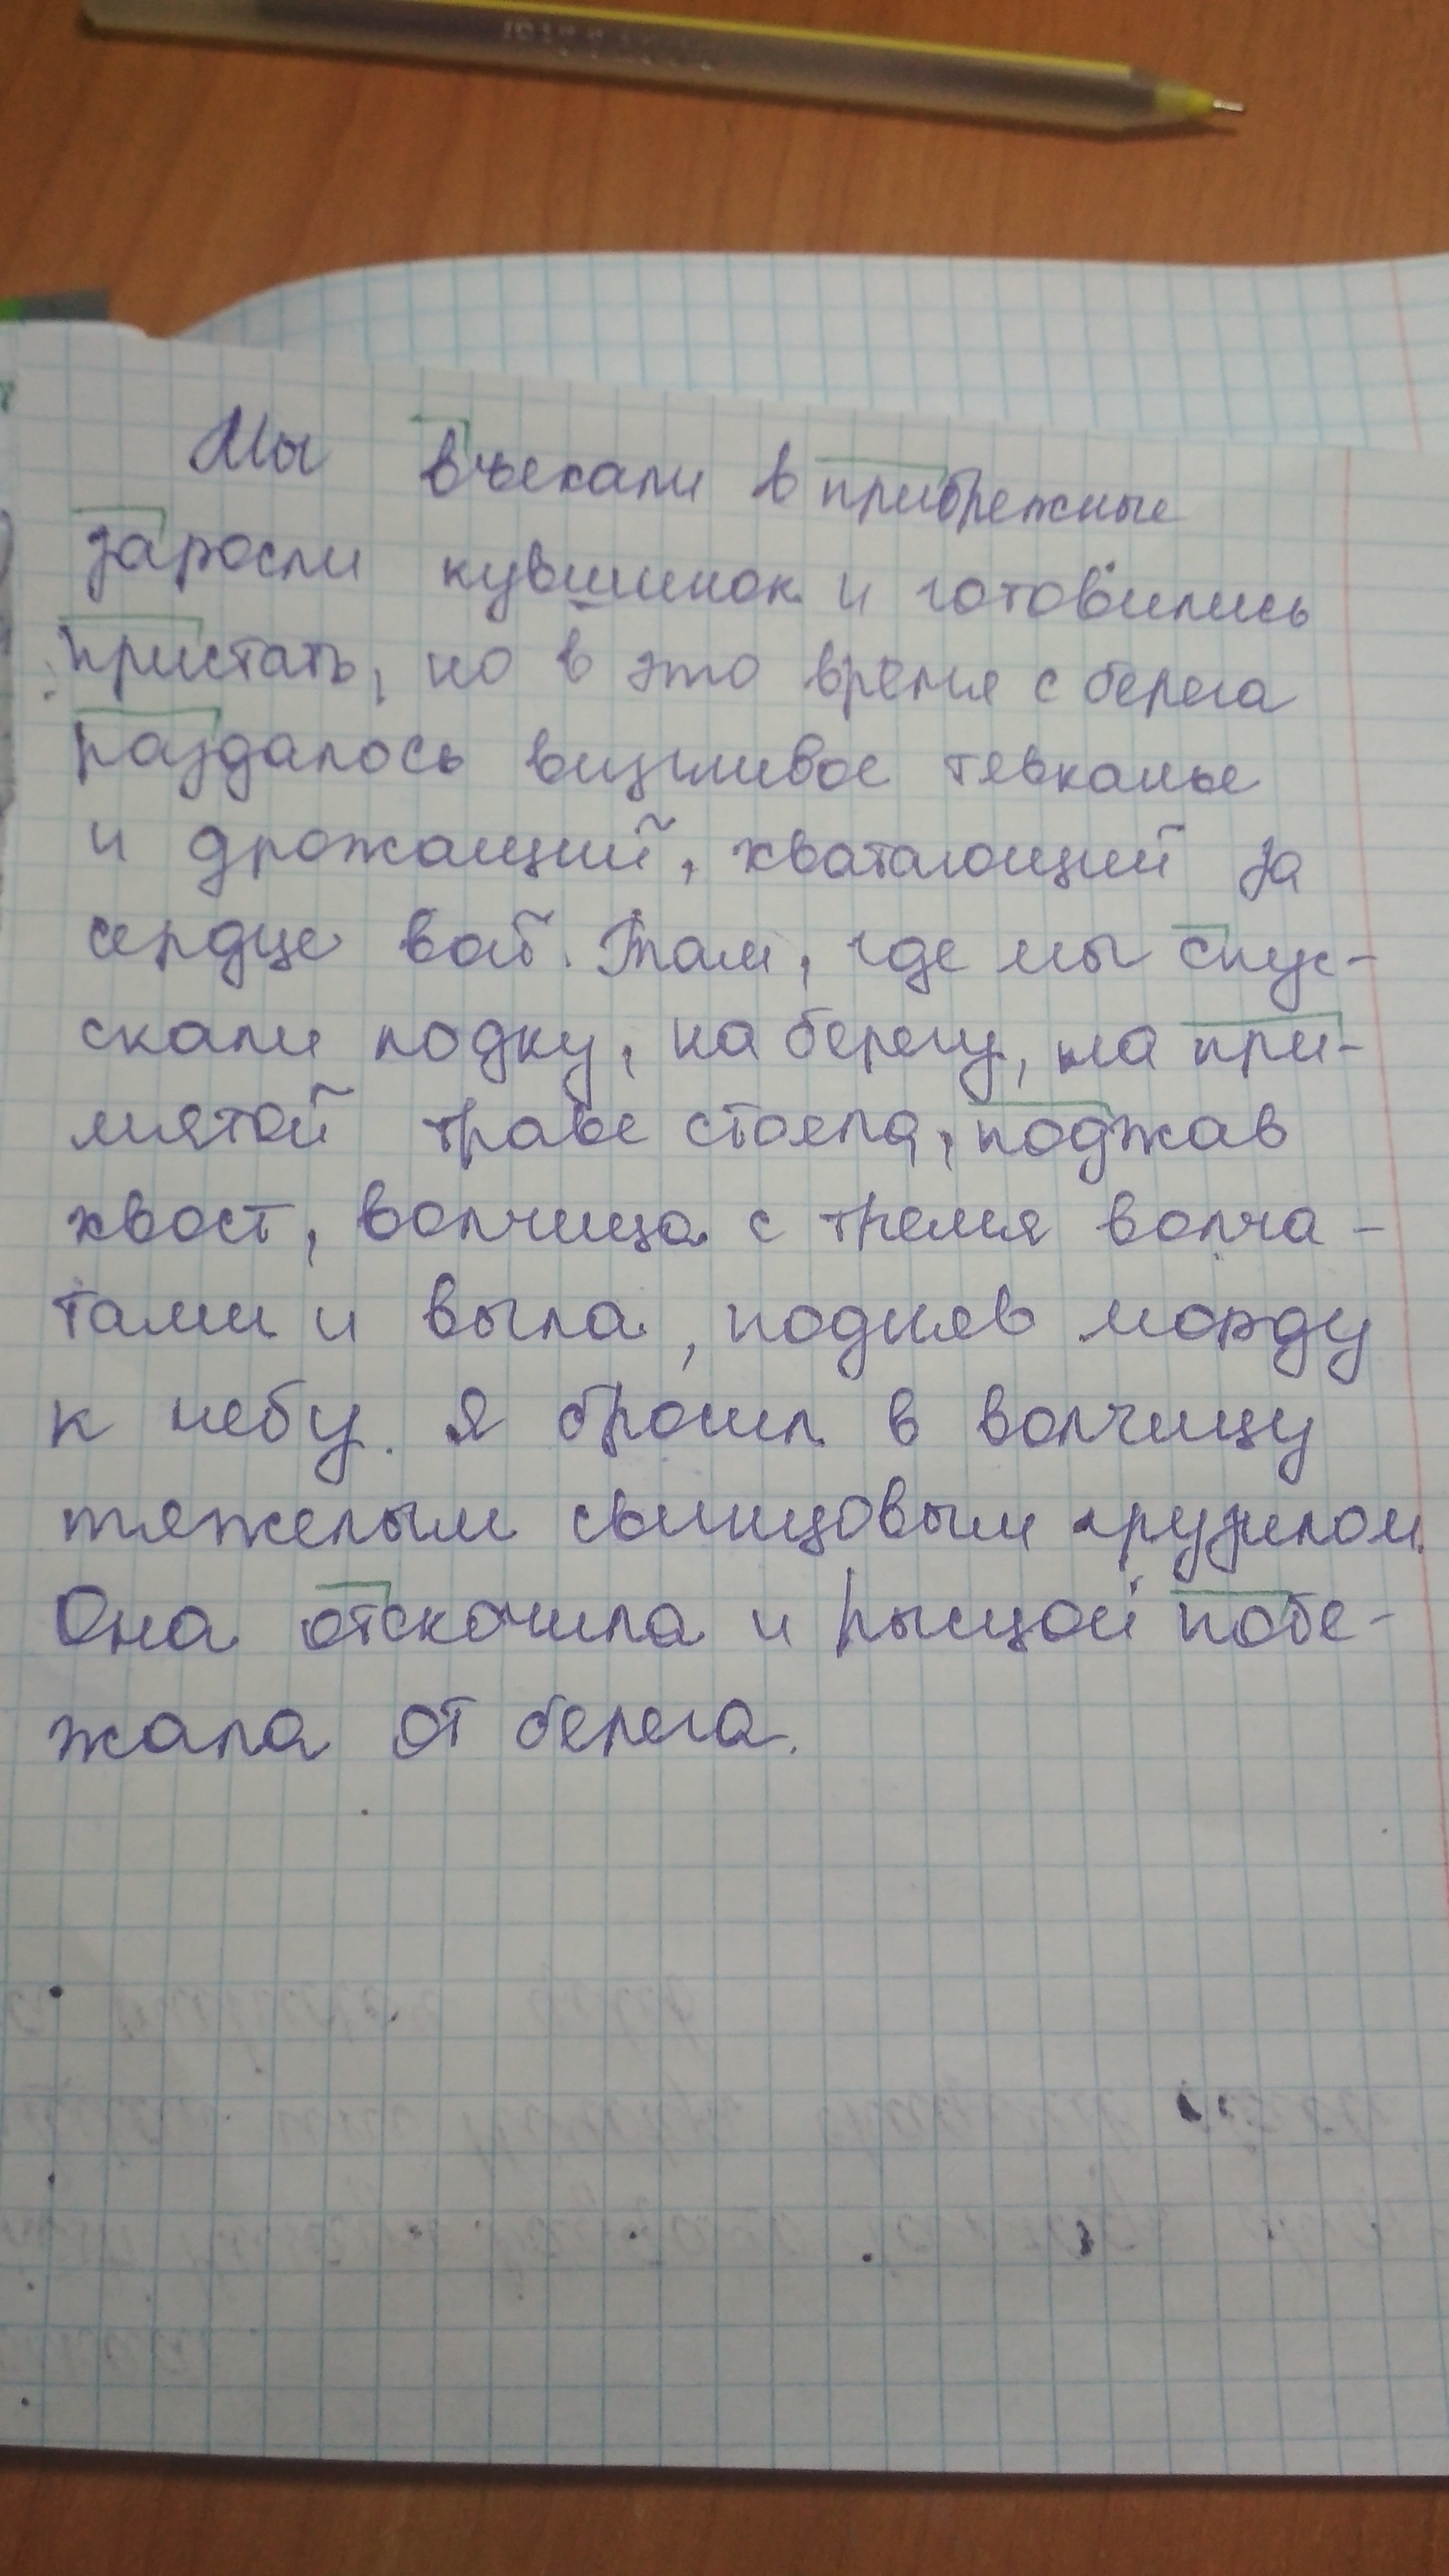 Мы въехали в прибрежные
заросли кувшинок и готовились
пристать, но в это время с берега
раздалось визгливое тявканье
и дрожащий, хватающий за
сердце вой. Там, где мы спус-
скали лодку, на берегу, на при-
мятой траве стояла, поджав
хвост, волчица с тремя волча-
тами и выла, подняв морду
к небу. Я бросил в волчицу
тяжелым свинцовым грузилом.
Она отскочила и рысцой побе-
жала от берега.